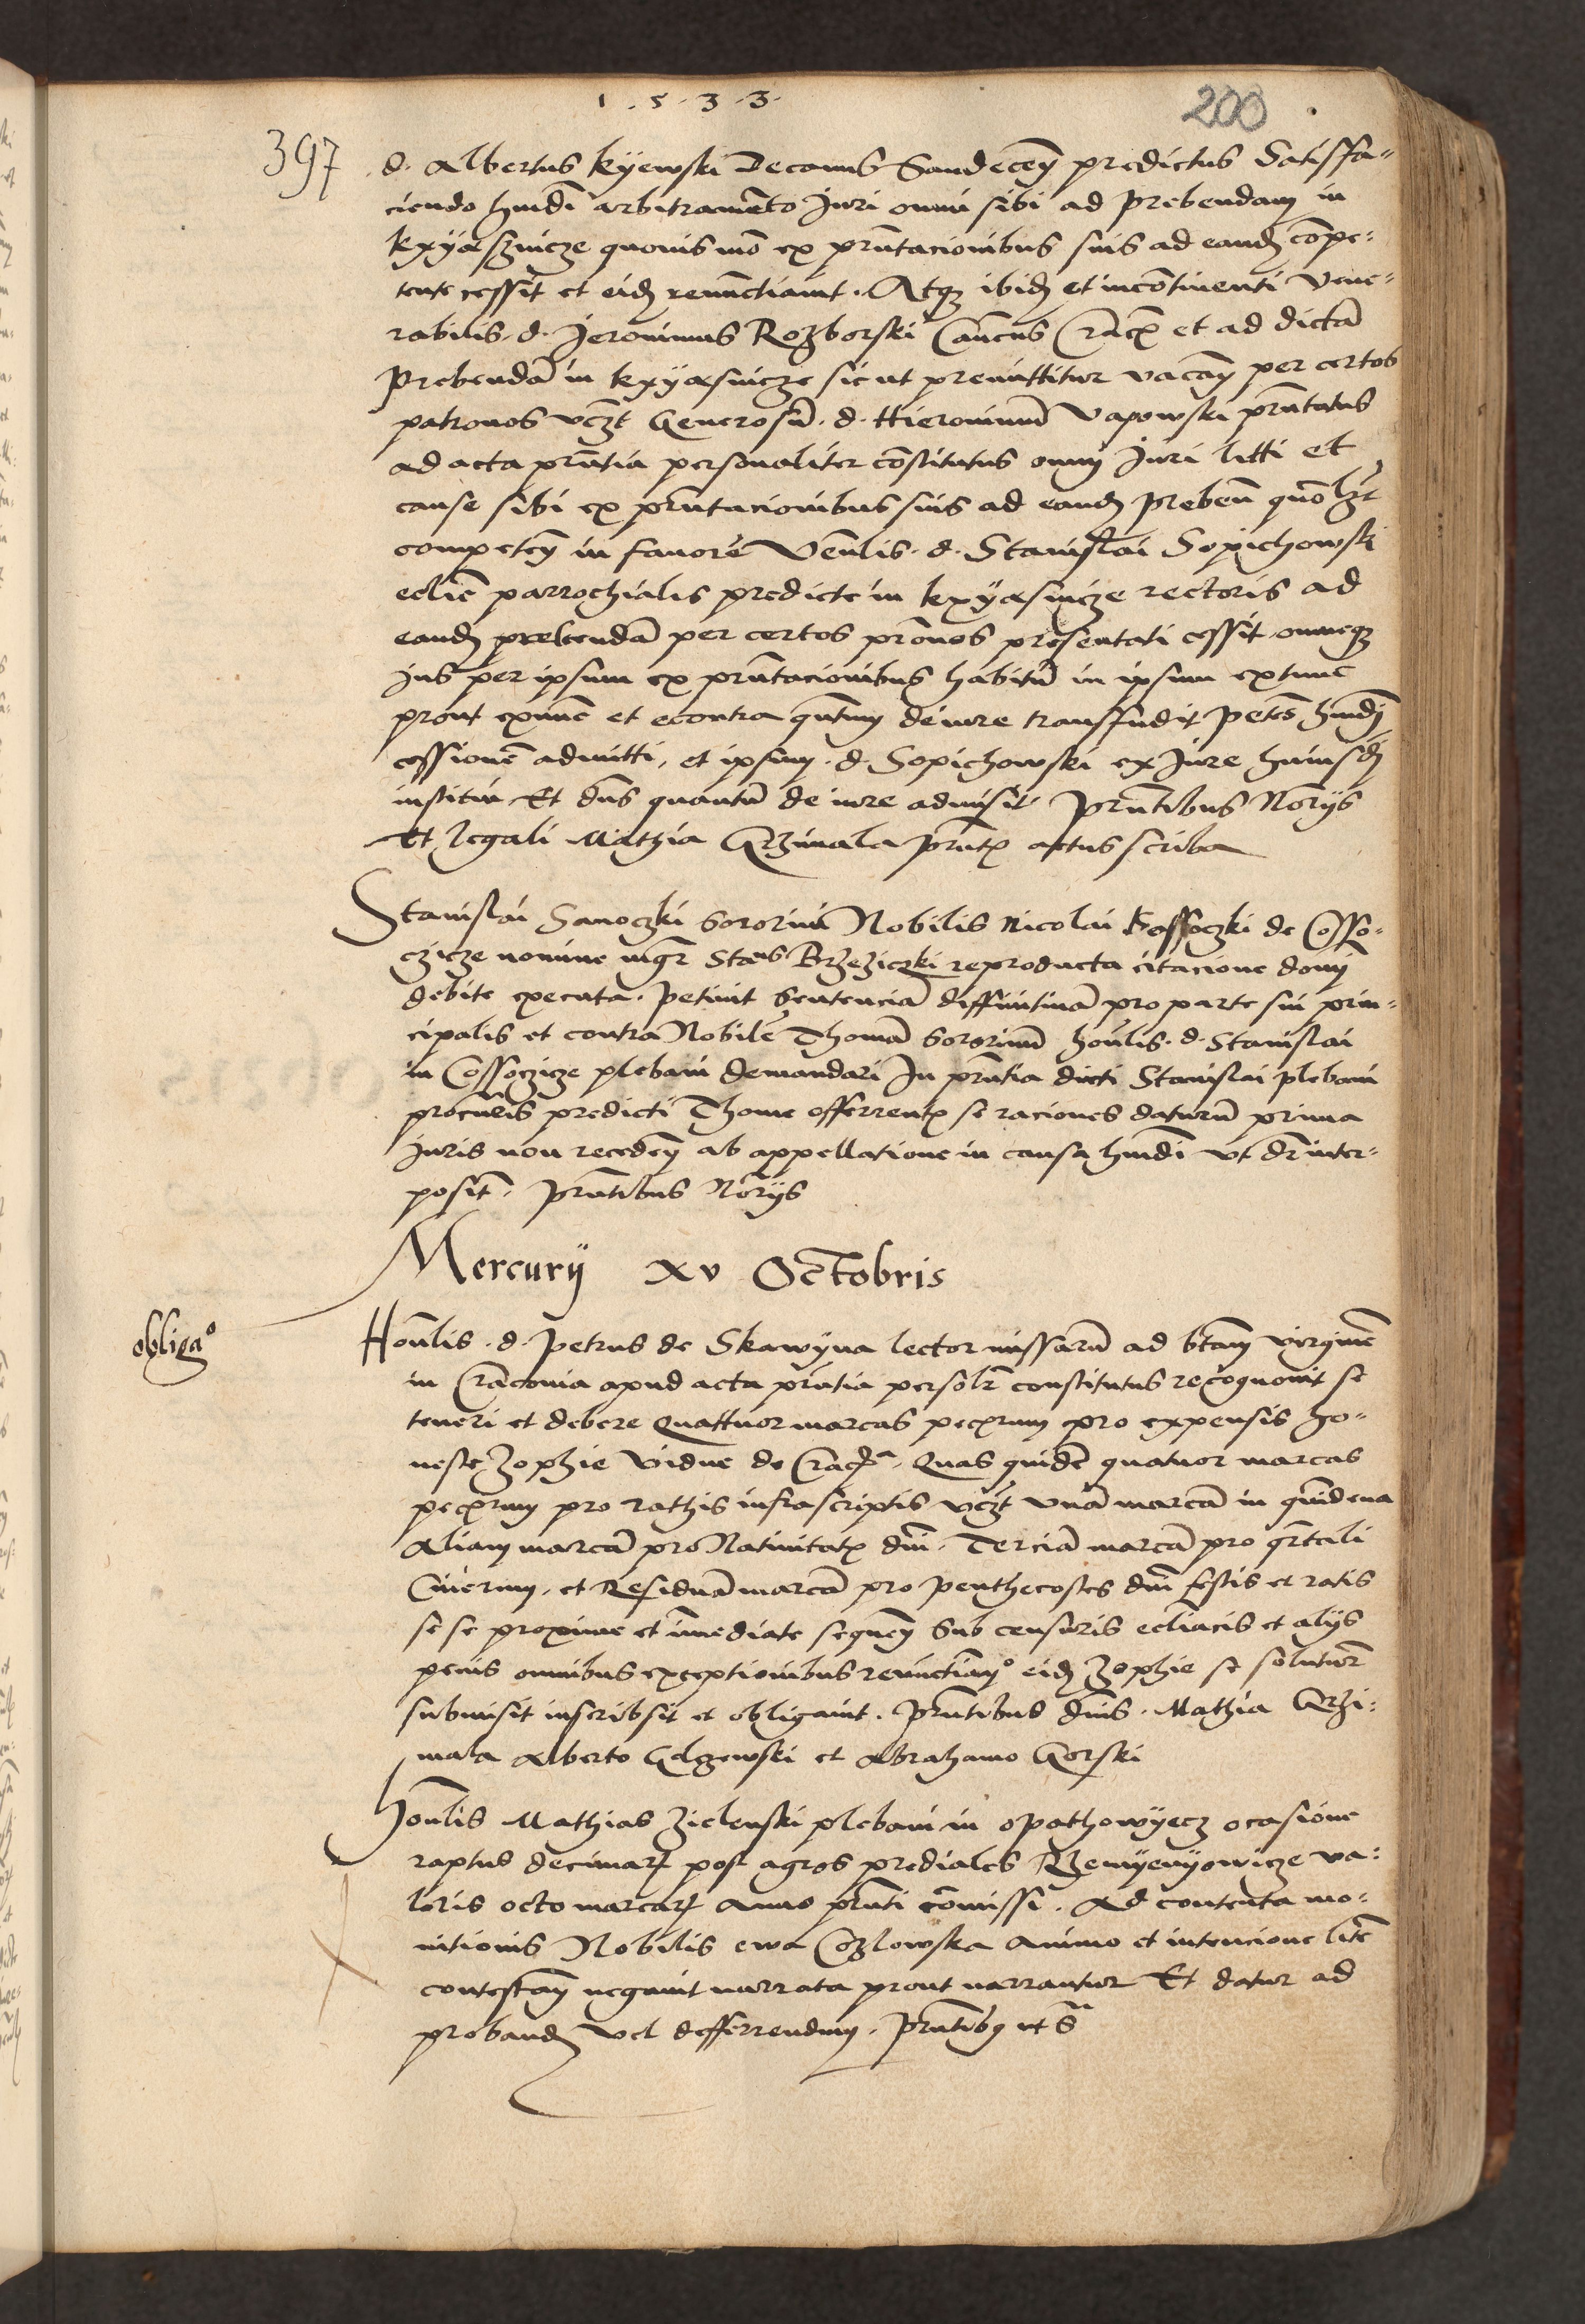 1.5.3.3.
200
397
d. Albertus kyewski Decanus Sandeceñ predictus Satisffa-
ciendo hmdi arbitramento Juri omni sibi ad prebendam in
kxyasznicze quovis mo ex prntacionibus suis ad eandem compe-
tente cessit et eidem renunctiavit. Atqz ibidem et incontinenti Vene-
rabilis. d. Jeronimus Rozborski Canonicus Crac et ad dictã
prebendã in kxyasnicze sicut premittitur vacañ per certos
patronos vczt Generosũ. d. Hieronimũ Vapowski prntatus
ad acta prntia personaliter constitutus omni Juri litti et
cause sibi ex prntacionibus suis ad eandem prebeñ quolzt
competeñ in favorẽ Venlis. d. Stanislai Sopichowski
eclie parrochialis predicte in kxyasnicze rectoris ad
eandem prebendã per certos pronos presentati cessit omneqz
jus per ipsum ex prntacionibus habitũ in ipsum extunc
prout exnunc et econtra qntum de iure transfudit petes hmdi
cessionẽ admitti, et ipsum. d. Sopichowski ex Jure huiusdem
institui Et dns quantũ de iure admisit prntibus Norijs
Et legali Mathia Grzimala prntis actus scriba
Stanislai Sanoczki sororini Nobilis Nicolai Cossoczki de Cosso-
czicze nomine mgr Staus Brzeziczki reproducta citacione domi
debite executa. petivit sentenciã diffinitivã pro parte sui prin-
cipalis et contra Nobilẽ Thomã sororinũ honlis. d. Stanislai
in Cossoczicze plebani demandari In prntia dicti Stanislai plebani
procuris predicti Thome offerrentis se raciones daturũ prima
Juris non recedeñ ab appellatione in causa hmdi vt dr inter-
posit. prntibus Norijs
Mercurij xv Octobris
obligao
Honlis. d. petrus de Skawyna lector missarũ ad btam virginẽ
in Cracovia apud acta prntia persolr constitutus recognovit se
teneri et debere Quattuor marcas pecrum pro expensis ho-
neste Zophie vidue de Crac. Quas quidẽ quatuor marcas
pecrum pro rathis infrascriptis vczt vnã marcã in quindena
Aliam marcã pro Nativitatis dni. Terciã marcã pro qrtali
Cinerum, et Residuã marcã pro penthecostes dni festis et ratis
se se proxime et imediate sequeñ Sub censuris ecliacis et alijs
penis omnibus exceptionibus renunctiando eidem Zophie se soluturũ
submisit inscribsit et obligavit. prntibus dnis. Mathia Grzi-
mala Alberto Gdzewski et Abrahamo Gorski
Honlis Mathias Zielenski plebani in opathowyecz ocasione
raptus decimarum post agros prediales Rzemyenyowicze va-
loris octo marcarum Anno prnti comissi. Ad contenta mo-
nitionis Nobilis ewa Cozlowska Animo et intencione litẽ
contestañ negavit narrata prout narrantur Et datur ad
probandem vel defferrendum. prntibus vt Sa